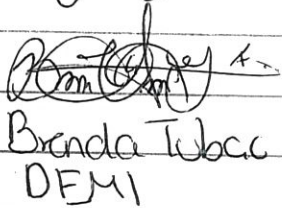 Brenda Tubac
DEMI